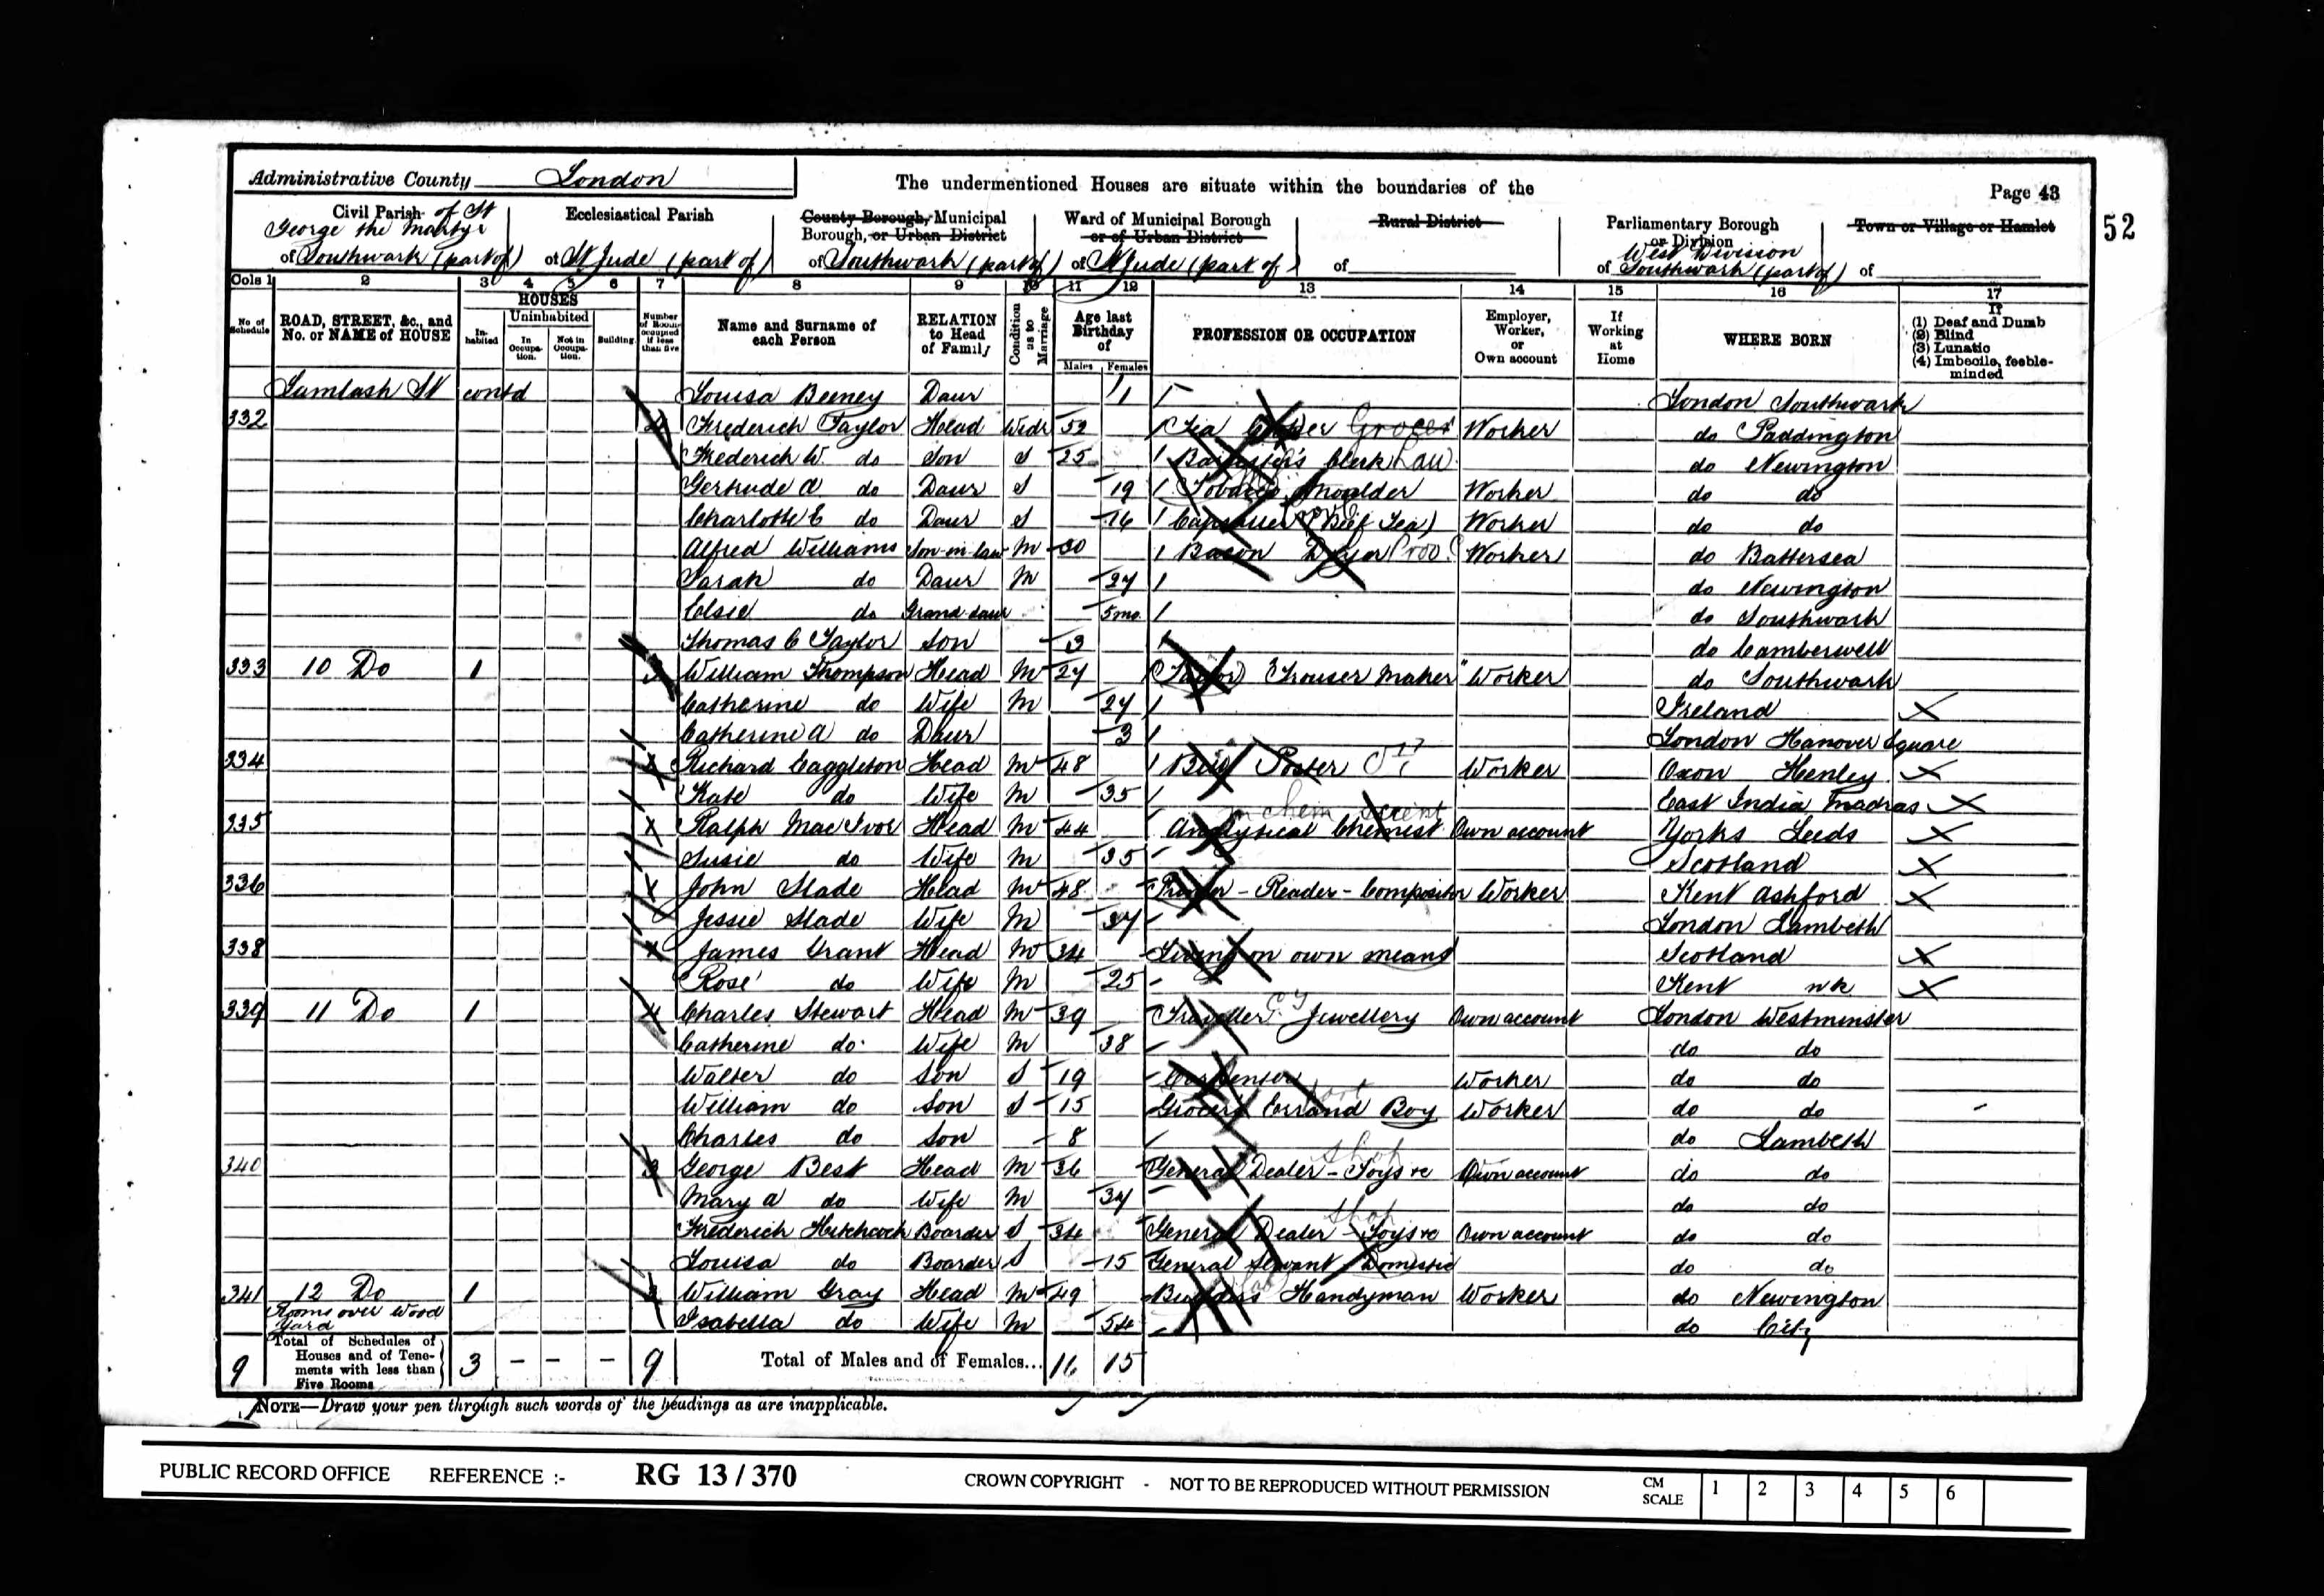 Administrative County London
The undermentioned Houses are situate within the boundaries of the
Page 43
52
Civil Parish of St George the Martyr of Southwark (part of)
Ecclesiastical Parish of St Jude (part of)
County Borough, Municipal Borough, or Urban District of Southwark (part of)
Ward of Municipal Borough or of Urban District of St Jude (part of)
Rural District of
Parliamentary Borough or Division of West Division Southwark (part of)
Town or Village or Hamlet of
Cols 1 2 3 4 5 6 7 8 9 10 11 12 13 14 15 16 17
No. of Schedule
ROAD, STREET, &c., and No. or NAME of HOUSE
HOUSES
Inhabited
Uninhabited
In Occupation.
Not in Occupation.
Building
Number of Rooms occupied if less than five
Name and Surname of each Person
RELATION to Head of Family
Condition as to Marriage
Age last Birthday of
Males Females
PROFESSION OR OCCUPATION
Employer, Worker, or Own account
If Working at Home
WHERE BORN
If
(1) Deaf and Dumb
(2) Blind
(3) Lunatic
(4) Imbecile, feeble-minded
Lamlash St contd Louisa Beeney Daur 11 London Southwark
332 Frederick Taylor Head Widr 52 Tea Grocer Worker do Paddington
Frederick W. do Son S 25 Barrister's Clerk Law do Newington
Gertrude A do Daur S 19 Tobacco Worker do do
Charlotte E do Daur S 16 Capsuler (Beef Tea) Worker do do
Alfred Williams Son-in-law M 30 Bacon Dryer Prov. Worker do Battersea
Sarah do Daur M 27 do Newington
Elsie do Grand daur 5 mo. do Southwark
Thomas C Taylor Son 3 do Camberwell
333 10 Do 1 3 William Thompson Head M 27 (Tailor) Trouser Maker Worker do Southwark
Catherine do Wife M 27 Ireland
Catherine A do Daur 3 London Hanover Square
334 Richard Caggleton Head M 48 Bill Poster Worker Oxon Henley
Kate do Wife M 35 East India Madras
335 Ralph MacIvor Head M 44 Analytical Chemist Own account Yorks Leeds
Susie do Wife M 35 Scotland
336 John Slade Head M 48 Printer - Reader - Compositor Worker Kent Ashford
Jessie Slade Wife M 37 London Lambeth
338 James Grant Head M 34 Living on own means Scotland
Rose do Wife M 25 Kent nk
339 11 Do 1 4 Charles Stewart Head M 39 Traveller Jewellery Own account London Westminster
Catherine do Wife M 38 do do
Walter do Son S 19 Carpenter Worker do do
William do Son S 15 Grocers Errand Boy Worker do do
Charles do Son 8 do Lambeth
340 3 George Best Head M 36 General Dealer - Toys &c Shop Own account do do
Mary A do Wife M 34 do do
Frederick Hitchcock Boarder S 34 General Dealer - Toys &c Shop Own account do do
Louisa do Boarder S 15 General Servant Domestic do do
341 12 Do 1 3 William Gray Head M 49 Builders Handyman Worker do Newington
Rooms over Wood Yard Isabella do Wife M 54 do City
9 Total of Schedules of Houses and of Tenements with less than Five Rooms 3 - - - 9 Total of Males and of Females... 16 15
NOTE—Draw your pen through such words of the headings as are inapplicable.
PUBLIC RECORD OFFICE REFERENCE :- RG 13 / 370 CROWN COPYRIGHT - NOT TO BE REPRODUCED WITHOUT PERMISSION CM SCALE 1 2 3 4 5 6